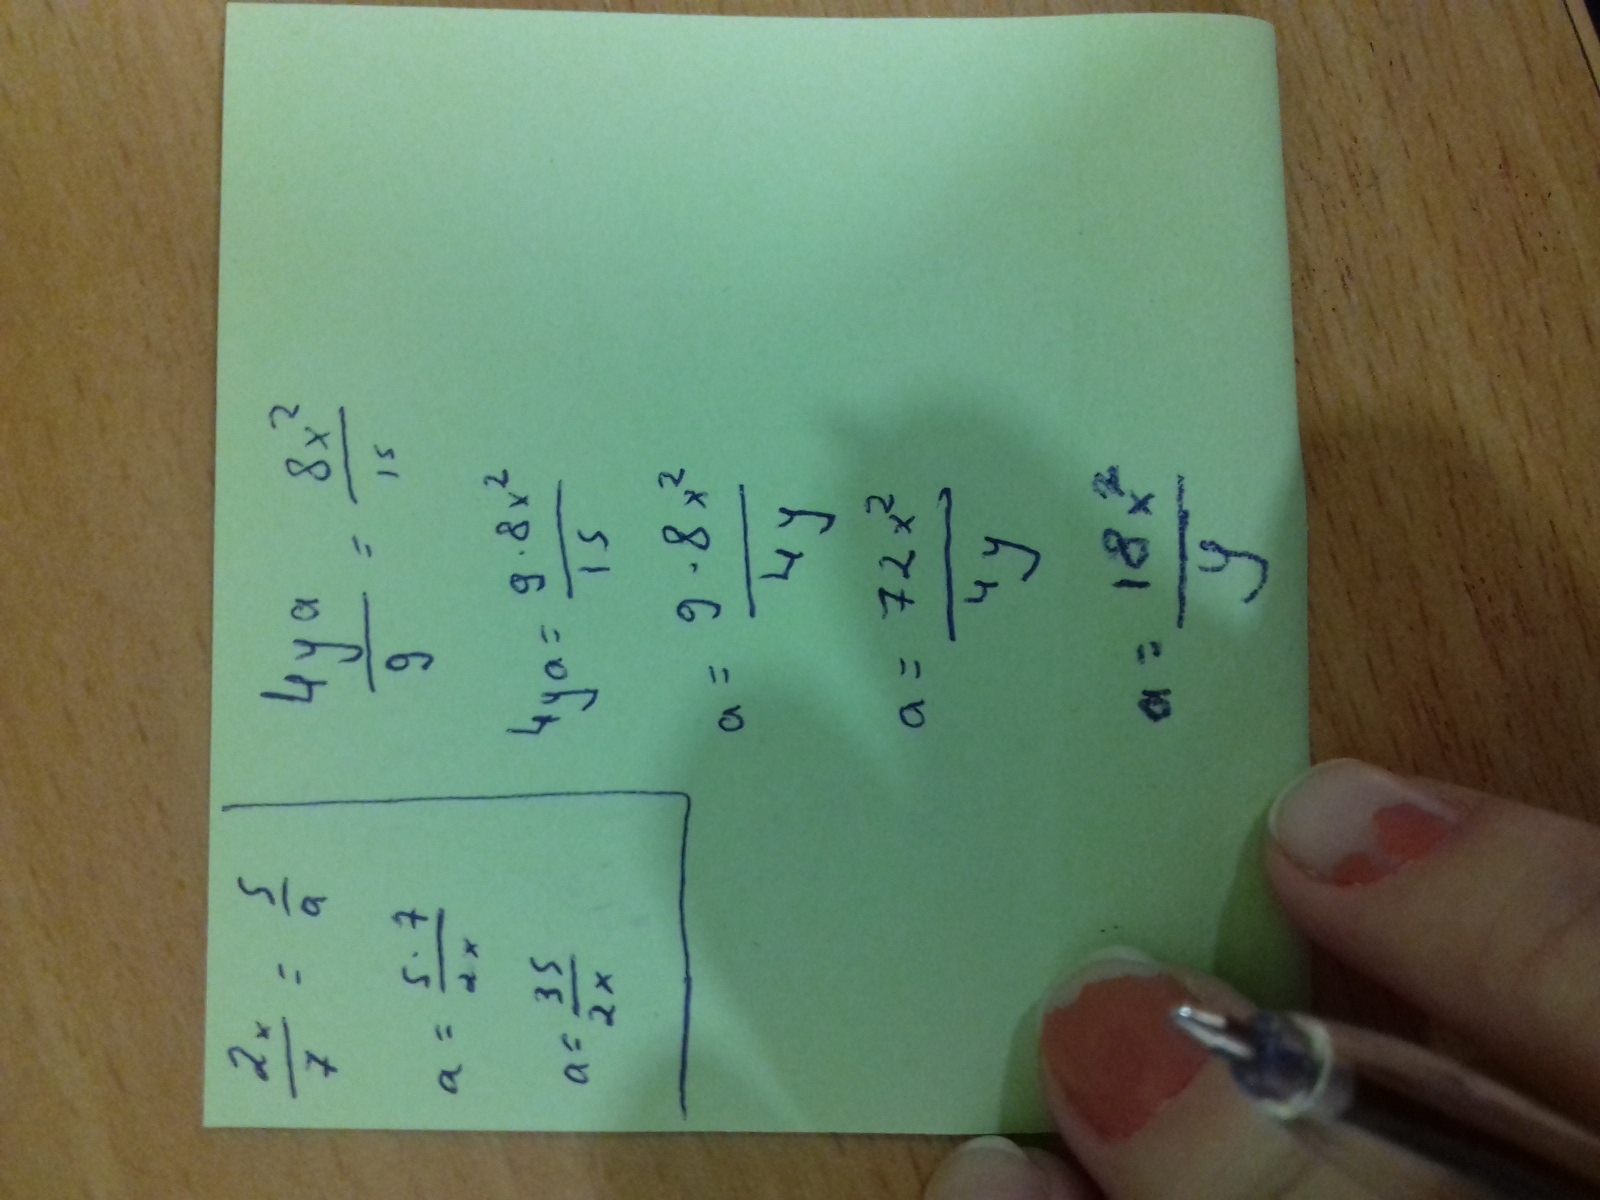 2x/7 = 5/a
a = 5·7/2x
a = 35/2x
4ya/9 = 8x²/15
4ya = 9·8x²/15
a = 9·8x²/4y
a = 72x²/4y
a = 18x²/y